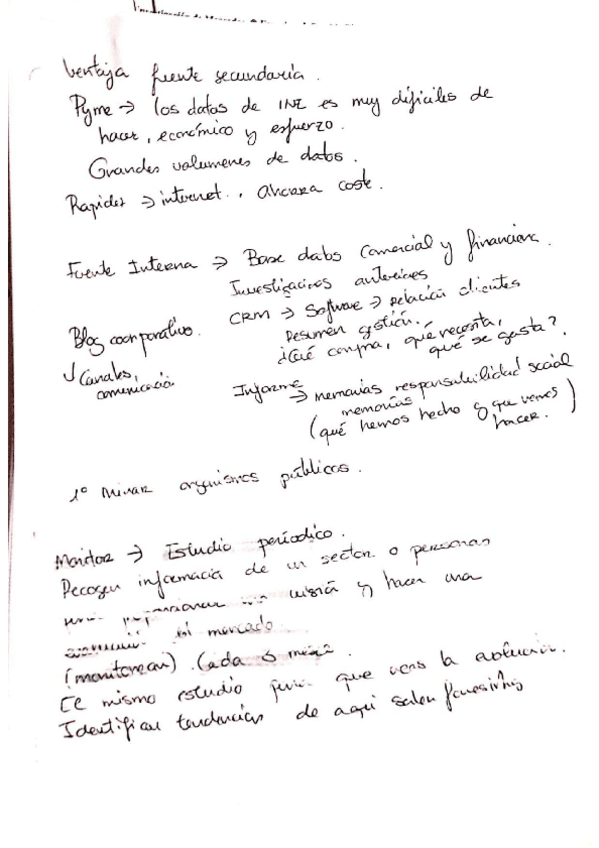 Ventaja fuente secundaria.
Pyme → los datos de INE es muy difíciles de
hacer, económico y esfuerzo.
Grandes volumenes de datos.
Rapidez → internet., Ahorra coste.
Fuente Interna → Base datos Comercial y financiera.
Investigaciones anteriores
CRM → Software → relación clientes
Resumen gestión.
¿Qué compra, qué necesita,
qué se gasta?
Blog coorporativo.
Canales,
comunicació
Informe
→ memorias responsabilidad social
memorias
(qué hemos hecho y que vemos
hacer.)
1º Mirar organismos públicos.
Monitor → Estudio períodico.
Recogen informació de un sector o personas
visió y hacer una
mercado
(monitorear). Cada 6
mismo estudio que vens la evolució.
Identifican tendencias de aqui salen